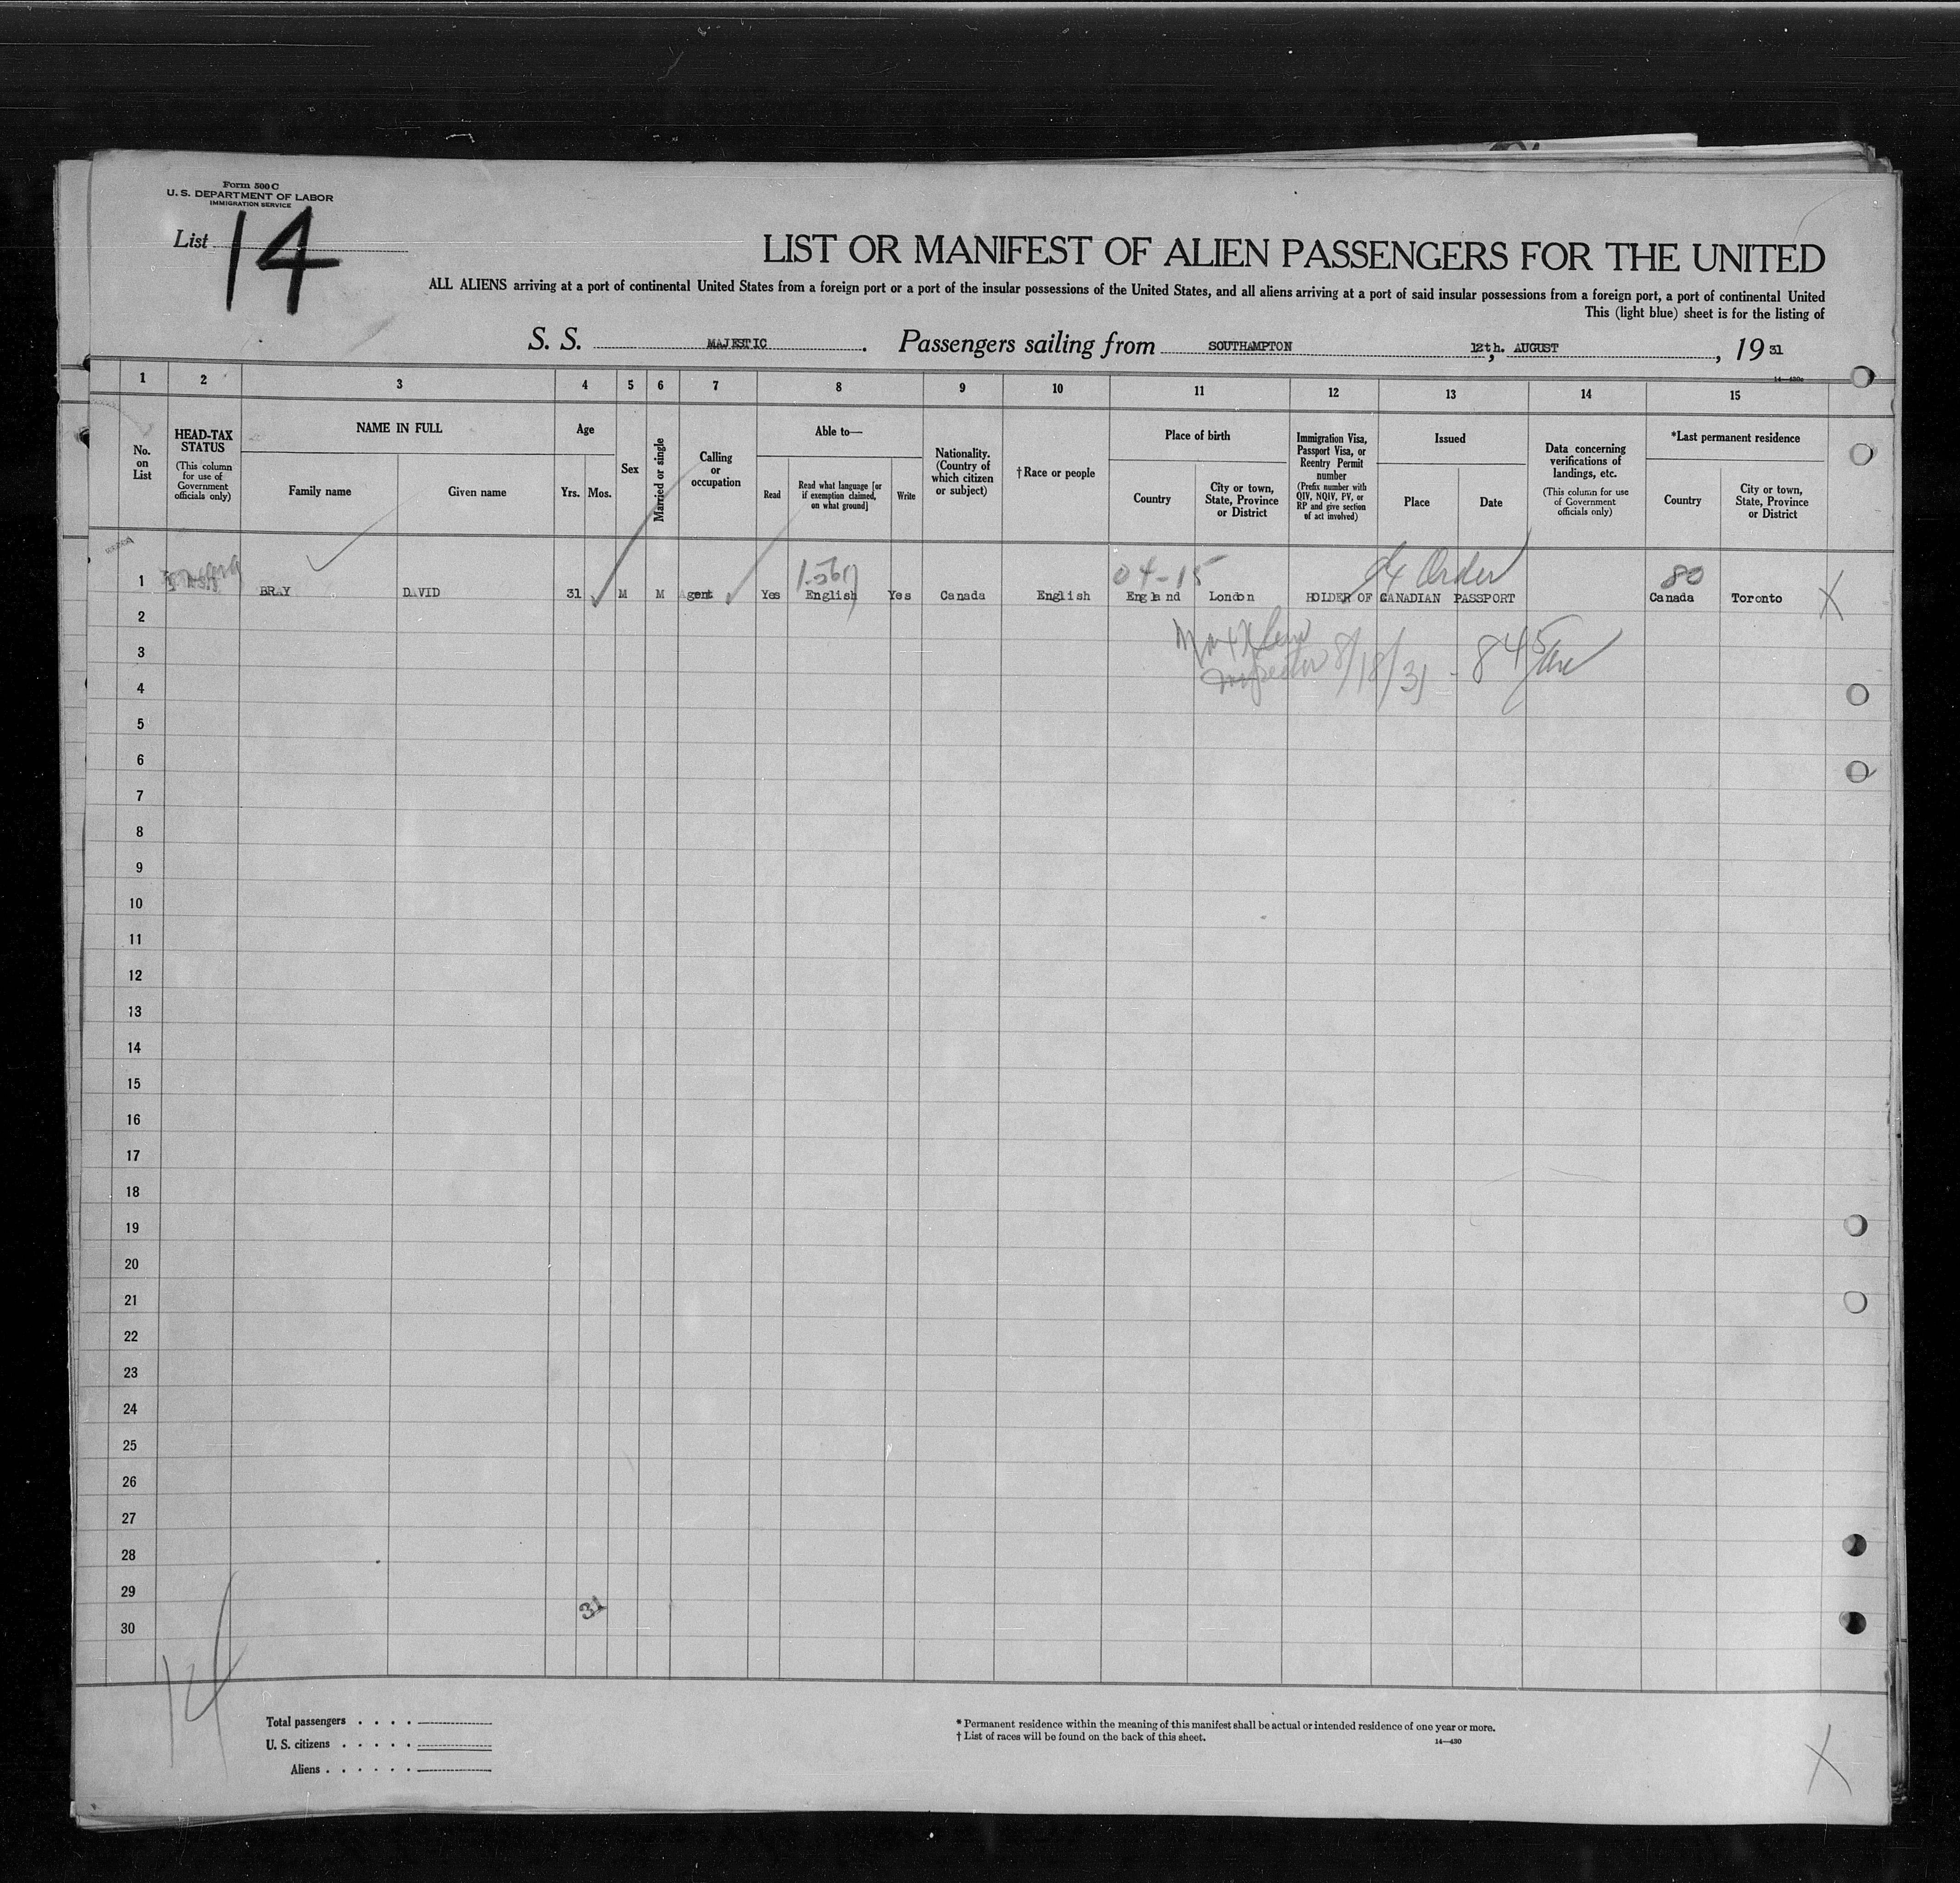 Form 500 C
U. S. DEPARTMENT OF LABOR
IMMIGRATION SERVICE
List 14
LIST OR MANIFEST OF ALIEN PASSENGERS FOR THE UNITED
ALL ALIENS arriving at a port of continental United States from a foreign port or a port of the insular possessions of the United States, and all aliens arriving at a port of said insular possessions from a foreign port, a port of continental United
This (light blue) sheet is for the listing of
S. S. MAJESTIC. Passengers sailing from SOUTHAMPTON 12th. , AUGUST , 19 31
14—430c
1 2 3 4 5 6 7 8 9 10 11 12 13 14 15
No. on List
HEAD-TAX STATUS (This column for use of Government officials only)
NAME IN FULL
Family name
Given name
Age
Yrs. Mos.
Sex
Married or single
Calling or occupation
Able to—
Read
Read what language [or if exemption claimed, on what ground]
Write
Nationality. (Country of which citizen or subject)
† Race or people
Place of birth
Country
City or town, State, Province or District
Immigration Visa, Passport Visa, or Reentry Permit number (Prefix number with QIV, NQIV, PV, or RP and give section of act involved)
Issued
Place
Date
Data concerning verifications of landings, etc. (This column for use of Government officials only)
*Last permanent residence
Country
City or town, State, Province or District
04-15 Order 80
1 BRAY DAVID 31 M M Agent Yes English Yes Canada English England London HOLDER OF CANADIAN PASSPORT Canada Toronto X
2
3
Inspector 8/18/31 - 845
4
5
6
7
8
9
10
11
12
13
14
15
16
17
18
19
20
21
22
23
24
25
26
27
28
29
31
30
14
Total passengers . . . .
U. S. citizens . . . . .
Aliens . . . . . .
* Permanent residence within the meaning of this manifest shall be actual or intended residence of one year or more.
† List of races will be found on the back of this sheet.
14—430
X